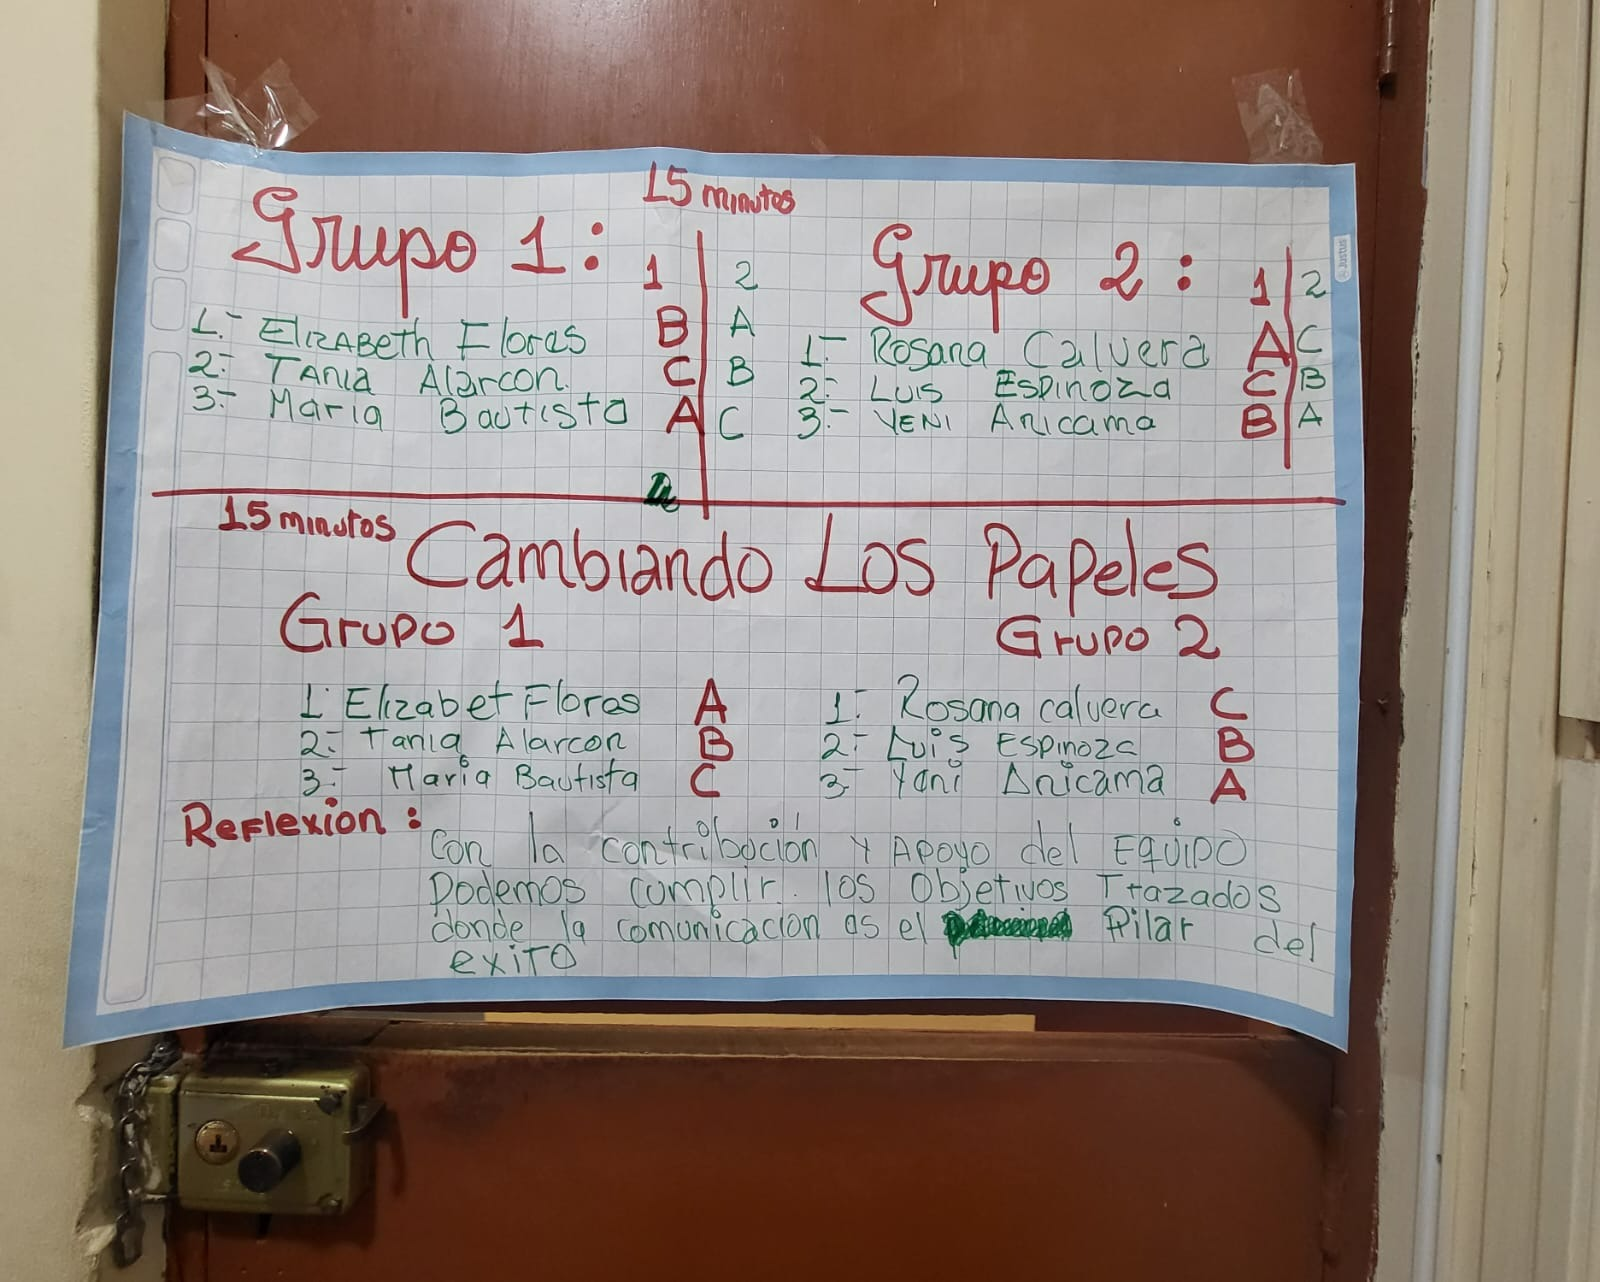 15 minutos
Grupo 1: 1 2
1.- Elizabeth Flores B A
2.- Tania Alarcon. C B
3.- Maria Bautista A C
Grupo 2: 1 2
1- Rosana Calvera A C
2- Luis Espinoza C B
3.- Yeni Anicama B A
Justus
15 minutos
Cambiando Los Papeles
Grupo 1
1. Elizabet Flores A
2.- Tania Alarcon B
3.- Maria Bautista C
Grupo 2
1.- Rosana calvera C
2- Luis Espinoza B
3- Yani Anicama A
Reflexion:
Con la contriboción y Apoyo del Equipo
Podemos cumplir. los Objetivos Trazados
donde la comunicacion es el Pilar del
exito